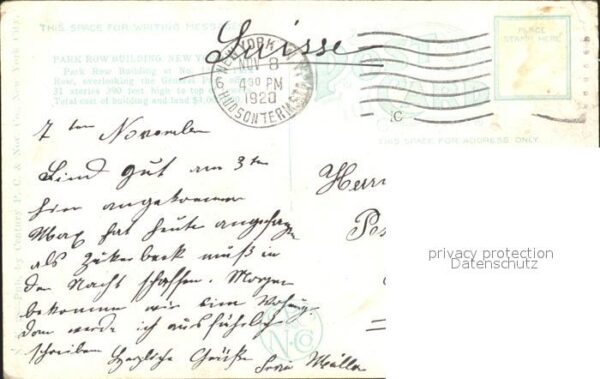 THIS SPACE FOR WRITING MESSAGE
Suisse
PARK ROW BUILDING, NEW YORK
Park Row Building at No.
Row, overlooking the General P
31 stories 390 feet high to top o
Total cost of building and land $
NEW YORK, N.Y.
NOV 8
4 30 PM
1920
HUDSON TERM. STA.
6
POST CARD
PLACE STAMP HERE
THIS SPACE FOR ADDRESS ONLY
7 ten November
Sind gut am 3ten
hier angekommen
Max hat heute angefangen
als Zukerbeck muß in
der Nacht schaffen. Morgen
bekommen wir eine Wohnung
dann werde ich ausführlich
schreiben Herzliche Grüße
Müller
Herrn
Pos
by Century P. C. & Nov. New York City.
N. Co
privacy protection
Datenschutz